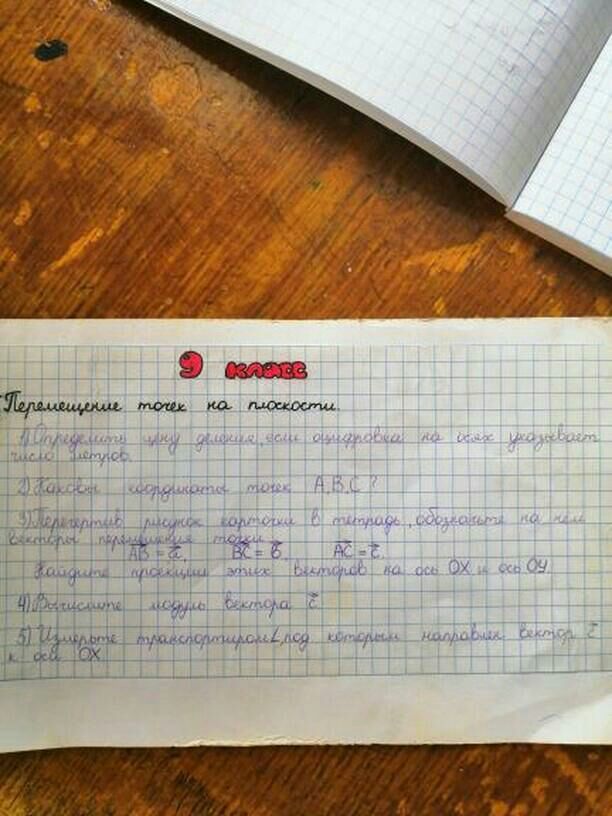 9 класс
Перемещение точек на плоскости.
1) Определить цену деления, если оцифровка на осях указывает
число метров.
2) Каковы координаты точек А,В,С?
3) Перечертив рисунок карточки в тетрадь, обозначьте на нем
векторы перемещения точки
АВ = а, ВС = в, АС = с.
Найдите проекции этих векторов на ось ОХ и ось ОУ.
4) Вычислите модуль вектора с
5) Измерьте транспортиром ∠, под которым направлен вектор с
к оси ОХ